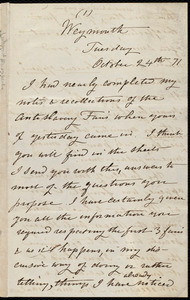 (1)
Weymouth
Tuesday
October 24th 71
I had nearly completed my
notes & recollections of the
Antislavery Fairs when yours
of yesterday came in. I think
you will find in the sheets
I send you with this, answers to
most of the questions you
propose. I have certainly given
you all the information you
required respecting the first 3 fairs
& as it happens in my dis-
cursive way of doing or rather
telling, things I have already noticed